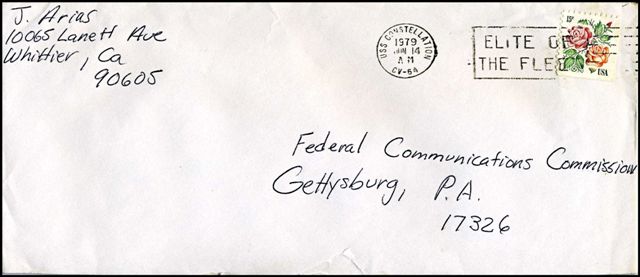 J. Arias
10065 Lanett Ave
Whittier, Ca
90605
USS CONSTELLATION
1979
JUN 14
AM
CV-64
ELITE OF
THE FLEE
15¢
USA
Federal Communications Commission
Gettysburg, P.A.
17326